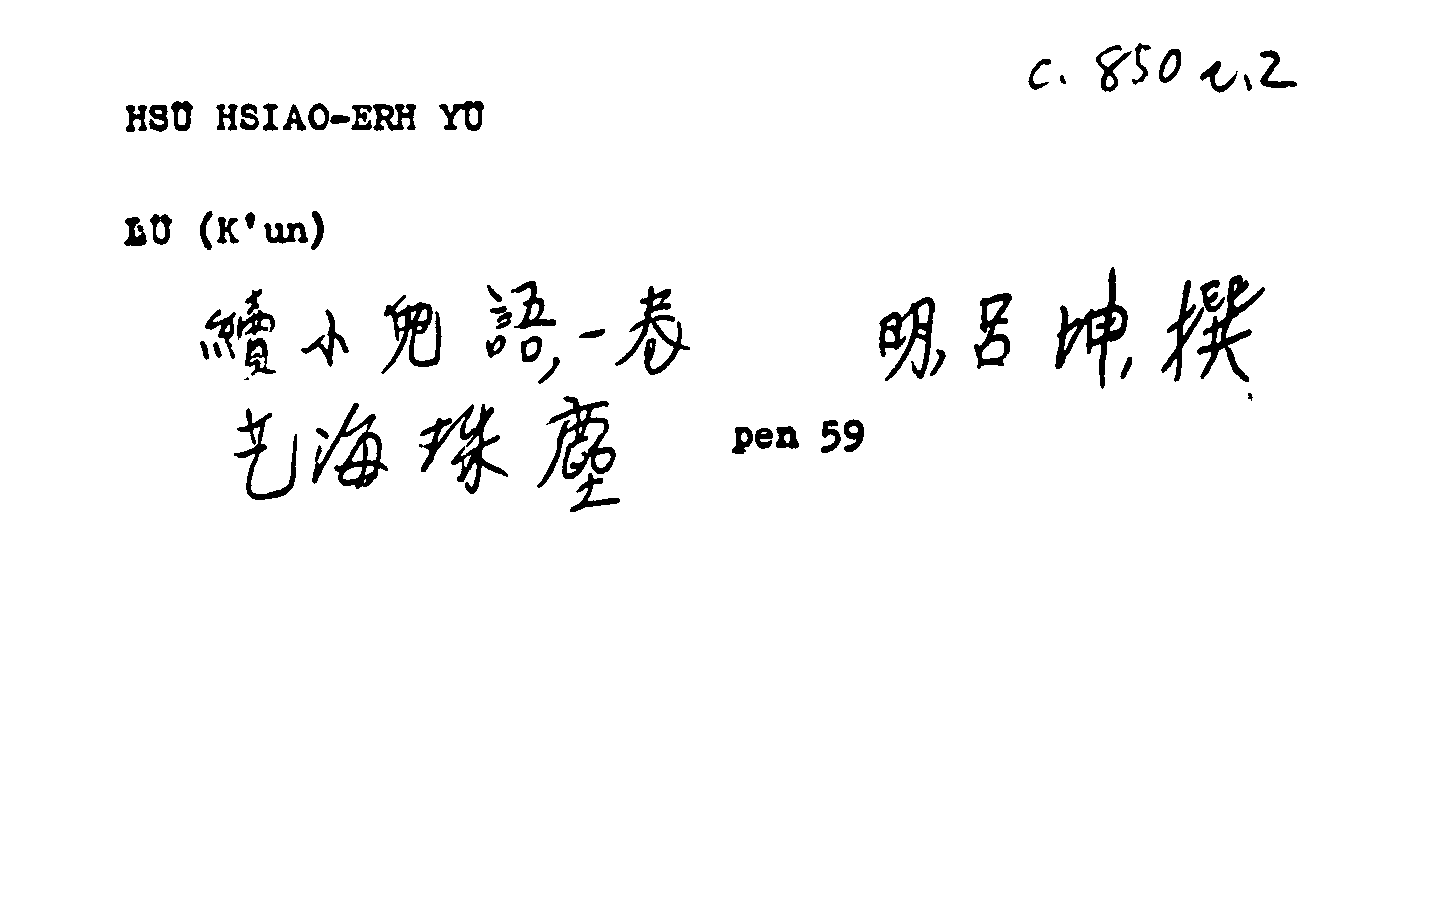 c. 850 e.2
HSÜ HSIAO-ERH YÜ
LÜ (K'un)
續小兒語,一卷 明,呂坤,撰
艺海珠塵 pen 59